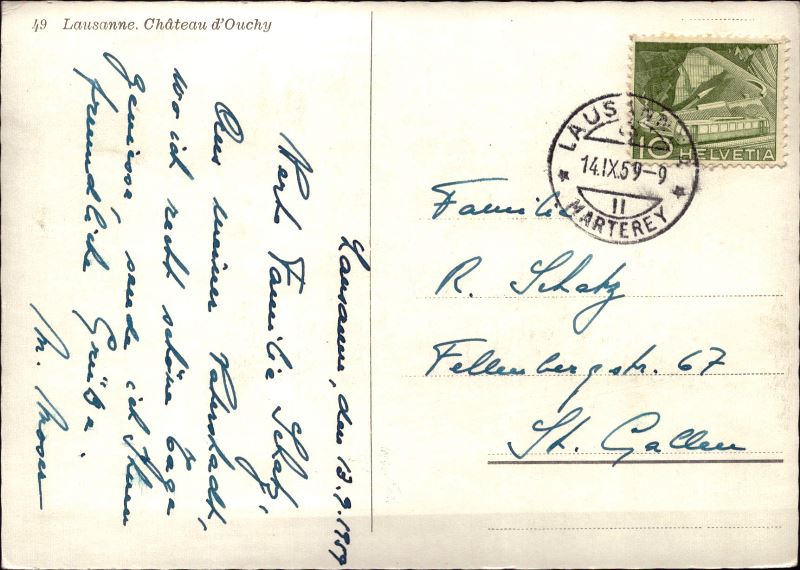 49 Lausanne. Château d'Ouchy
Lausanne, den 13.9.1959
Werte Familie Schatz,
Aus meiner Vaterstadt,
wo ich recht schöne Tage
geniesse, sende ich Ihnen
freundliche Grüsse.
M. Moser
LAUSANNE
14.IX.59-9
11
MARTEREY
10 HELVETIA
Familie
R. Schatz
Fellenbergstr. 67
St. Gallen